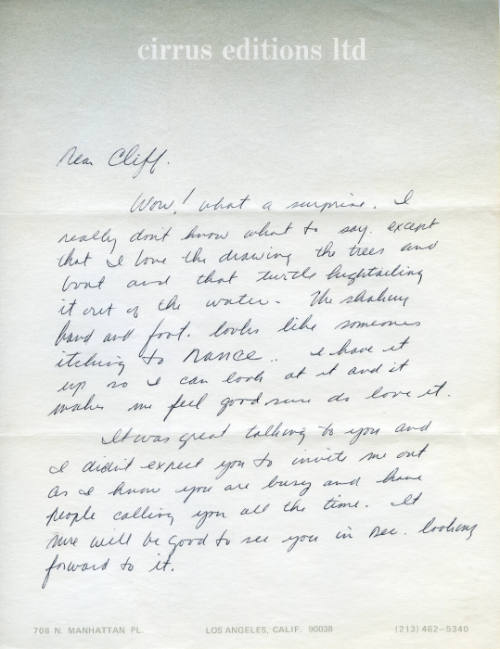 cirrus editions ltd
Dear Cliff.
Wow! what a surprise. I
really don't know what to say. except
that I love the drawing the trees and
boat and that turtle hightailing
it out of the water - The shaking
hand and foot. looks like someones
itching to DANCE.. I have it
up so I can look at it and it
makes me feel good sure do love it.
It was great talking to you and
I didn't expect you to invite me out
as I know you are busy and have
people calling you all the time. It
sure will be good to see you in Dec. looking
forward to it.
708 N. MANHATTAN PL. LOS ANGELES, CALIF. 90038 (213) 462-5340